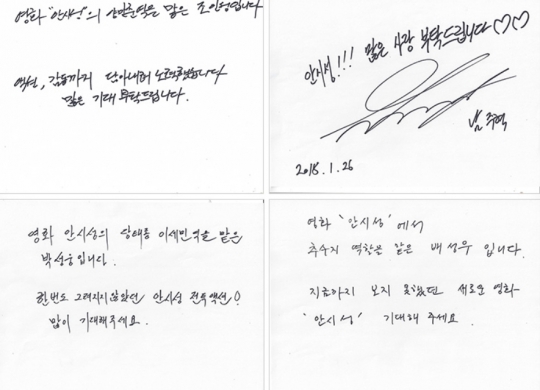 영화 "안시성"의 양만춘역을 맡은 조인성입니다
액션, 감동까지 담아내려 노력했습니다
많은 기대 부탁드립니다.
안시성!!! 많은 사랑 부탁드립니다♡♡
남주혁
2018.1.26
영화 안시성의 당태종 이세민역을 맡은
박성웅입니다.
한번도 그려지지 않았던 안시성 전투액션!
많이 기대해주세요.
영화 '안시성'에서
추수지 역할을 맡은 배성우 입니다.
지금까지 보지 못했던 새로운 영화
'안시성' 기대해 주세요.